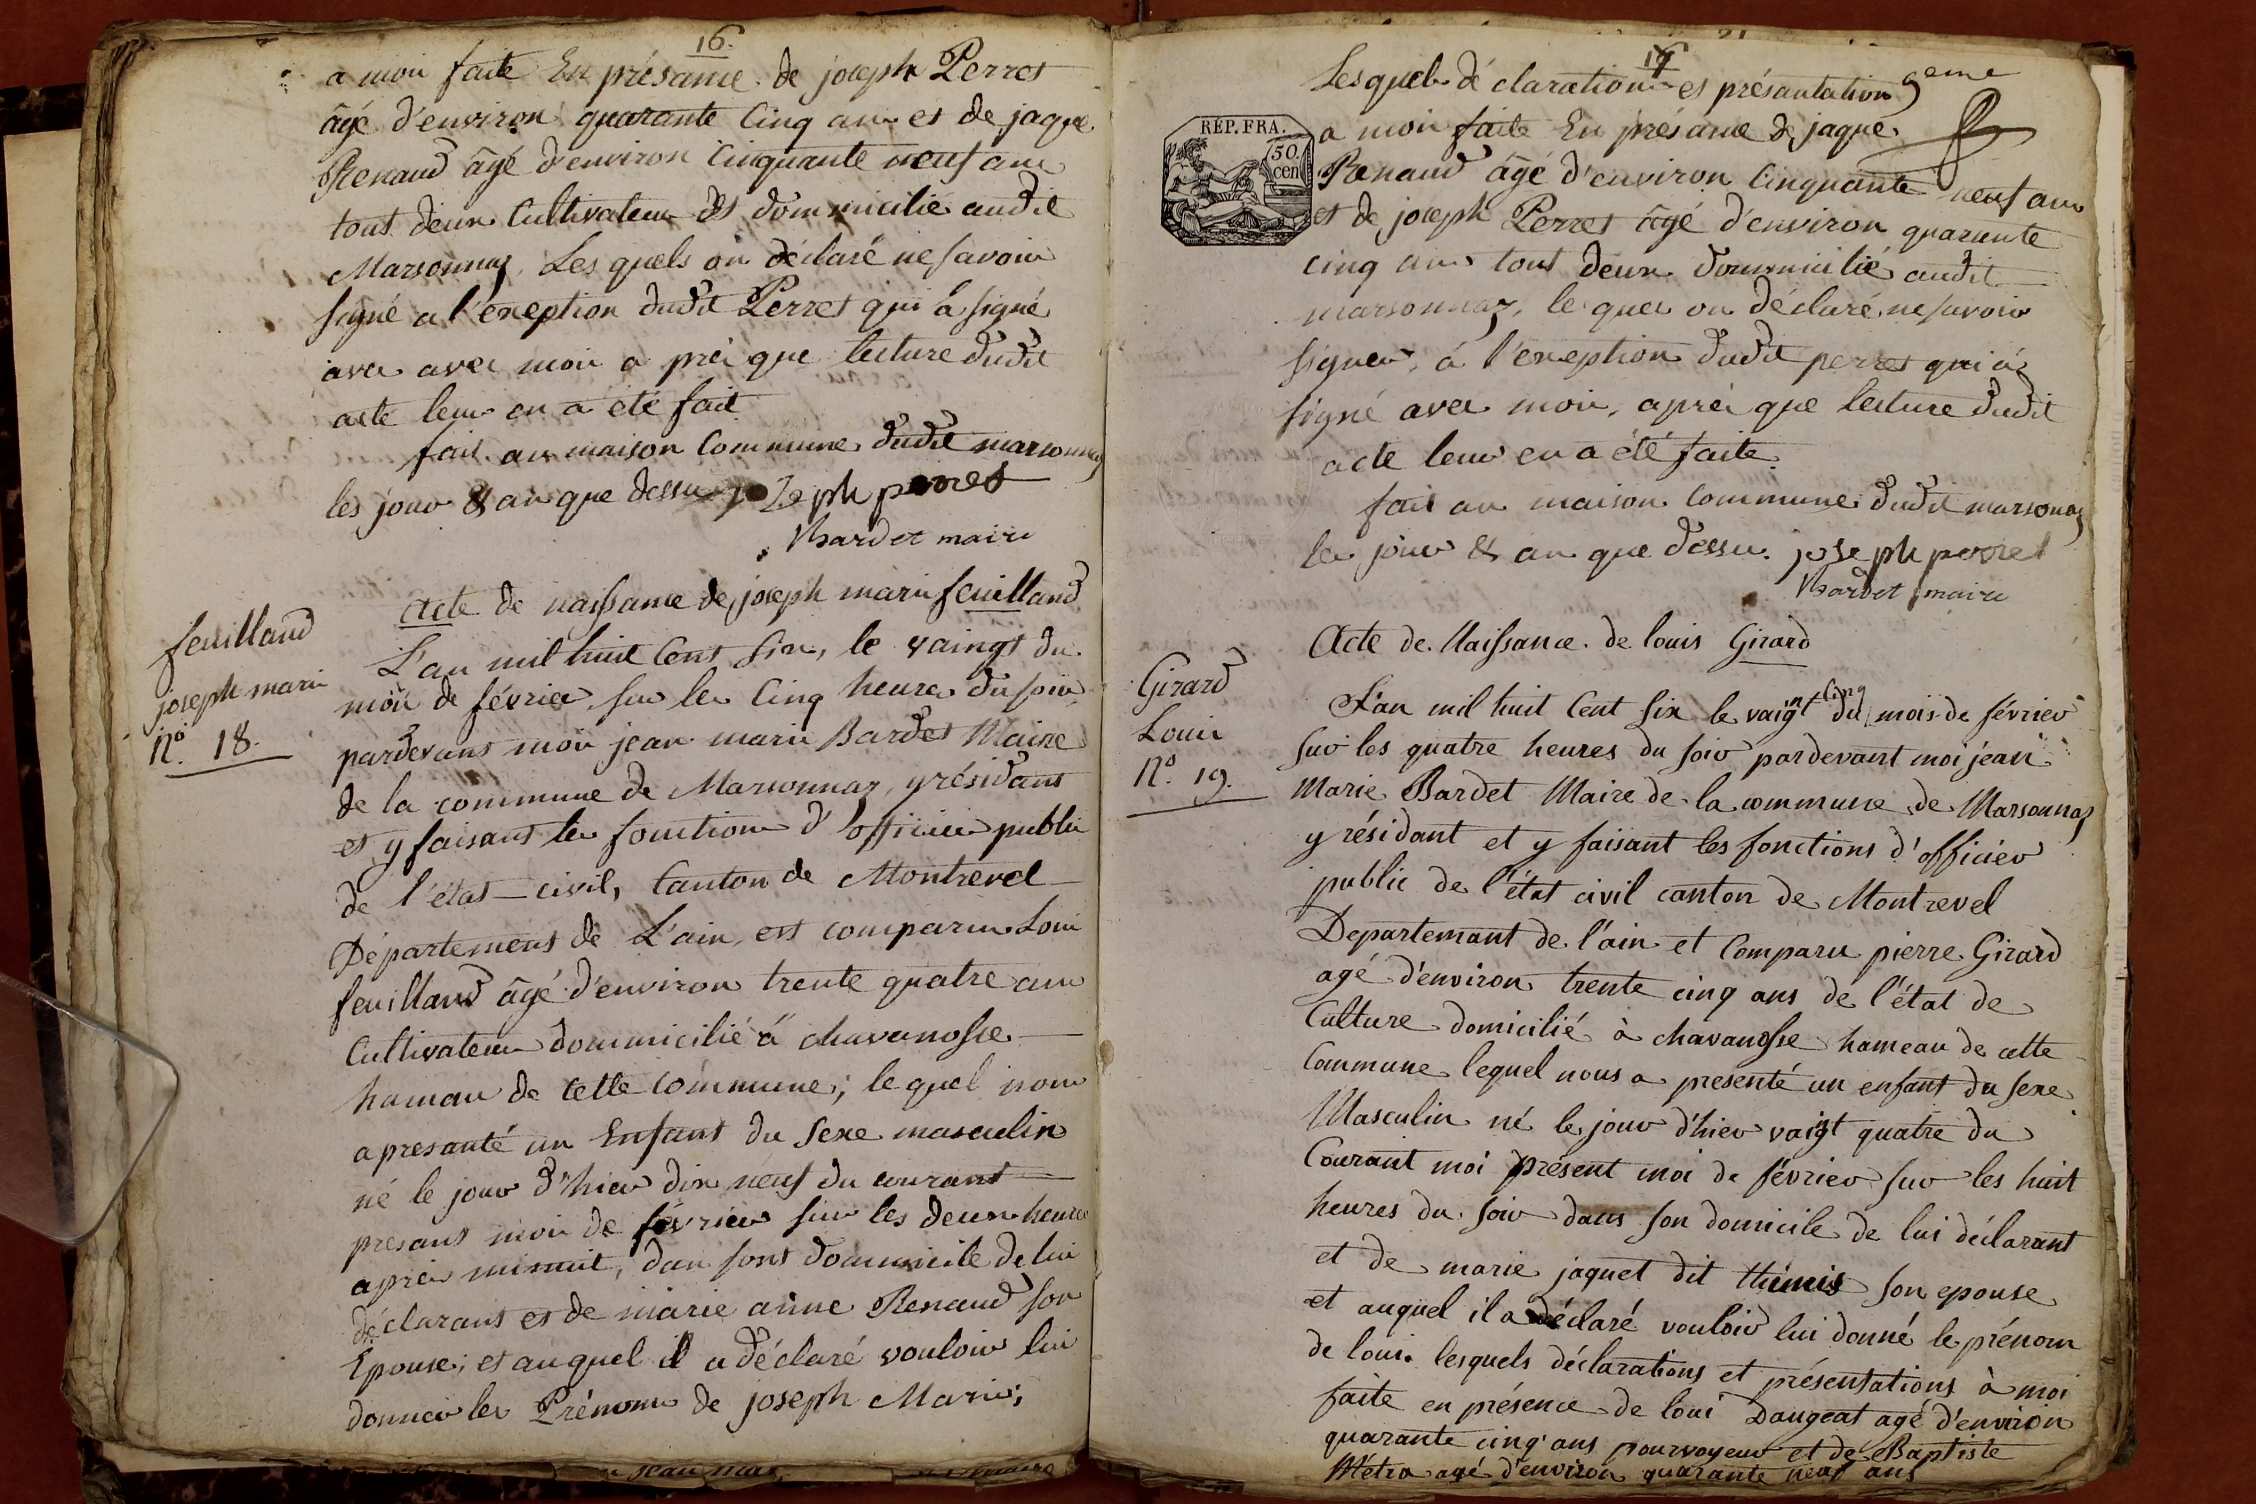 16.
a moii faite En présance de joseph Perret
âgé d'environ quarante Cinq ans et de jaque
Renaud âgé d'environ Cinquante neuf ans
tous deux Cultivateur et dommicilié audit
Marsonnaz, Les quels on déclaré ne savoir
signé a l'exeption dudit Perret qui a signé
avec avec moii a prèi que lecture dudit
acte leur en a été fait
fait au maison Commune dudit marsonnaz
les jour & an que dessu joseph perret
Bardet maire
feuilland
joseph marie
N.o 18.
Acte de naissance de joseph marie feuilland
L'an mil huit Cent six, le vaingt du
moii de février sur les Cinq heures du soir
pardevant moii jean marie Bardet Maire
de la commune de Marsonnaz, y résidant
et y faisant les fonctions d'officier public
de l'état-civil, Canton de Montrevel
Département de L'ain, est comparu Loui
feuilland âgé d'environ trente quatre ans
Cultivateur dommicilié à chavanosse
hameau de cette commune; le quel nous
a presanté un Enfant du sexe masculin
né le jour d'hier dix neuf du courant
presant moii de février sur les deux heures
aprèi minuit, dan sont dommicile de lui
déclarant et de marie anne Renaud son
Epouse; et auquel il a déclaré vouloir lui
donner les Prénoms de joseph Marie;
Lesquels déclaration et présantation
9eme
RÉP. FRA.
50 cen
a moii faite En présance de jaque
Renaud âgé d'environ Cinquante neuf ans
et de joseph Perret âgé d'environ quarante
cinq ans tous deux dommicilié audit
marsonnaz, le quel on déclaré ne savoir
signer, à l'exeption dudit perret qui à
signé avec moii, aprèi que lecture dudit
acte leur en a été faite
fait au maison Commune dudit marsonaz
les jour & an que dessu. joseph perret
Bardet maire
Girard
Loui
N.o 19.
Acte de Naissance de louis Girard
L'an mil huit Cent six le vaignt cinq du mois de février
sur les quatre heures du soir pardevant moi jean
Marie Bardet Maire de la commune de Marsonnaz
y résidant et y faisant les fonctions d'officier
public de l'état civil canton de Montrevel
Departemant de l'ain et Comparu pierre Girard
agé d'environ trente cinq ans de l'état de
Culture domicilié à chavanosse hameau de cette
Commune lequel nous a presenté un enfant du sexe
Masculin né le jour d'hier vaigt quatre du
Courant moi présent moi de février sur les huit
heures du soir dans son domicile de lui déclarant
et de marie jaquet dit thémis son epouse
et auquel il a déclaré vouloir lui donné le prénom
de loui. lesquels déclarations et présentations à moi
faite en présence de loui Daugeat agé d'environ
quarante cinq ans pourvoyeur et de Baptiste
Métra agé d'environ quarante neuf ans